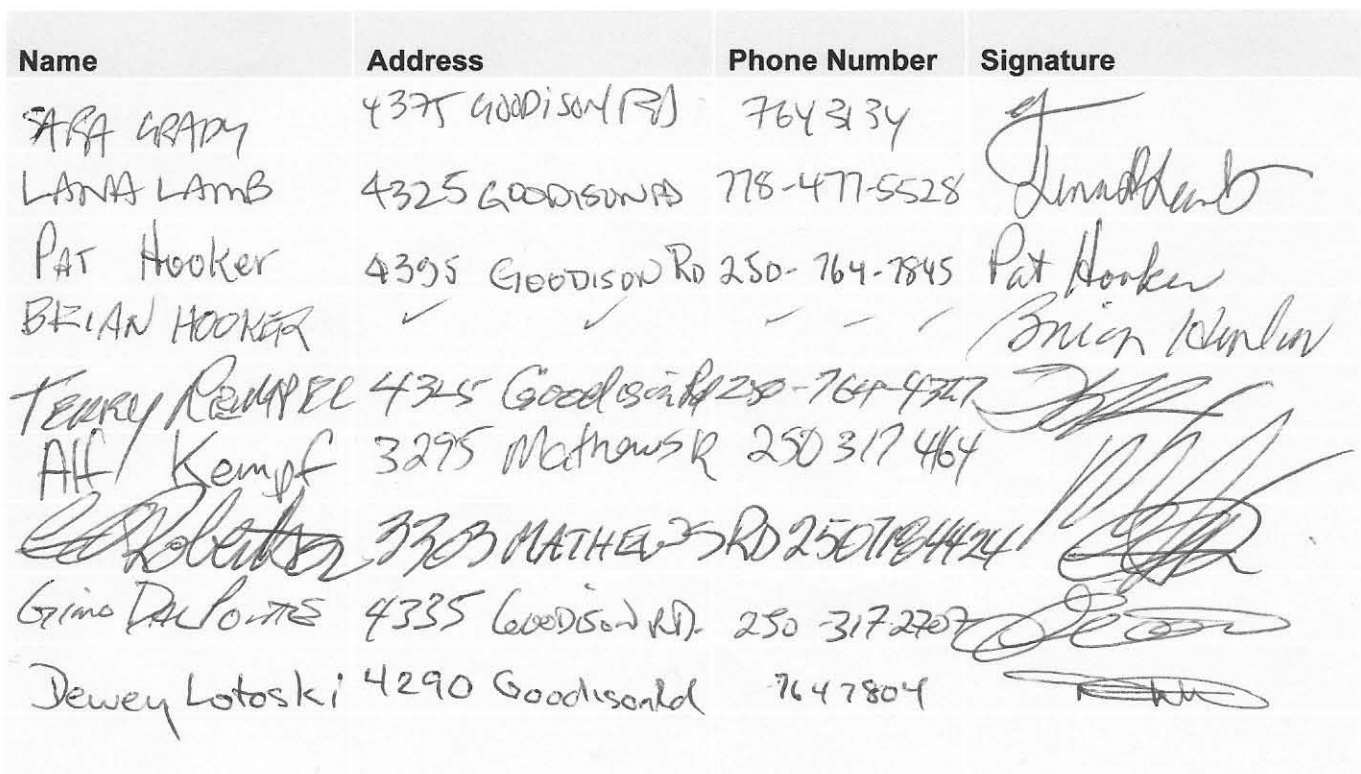 Name Address Phone Number Signature
SARA GRADY 4375 GOODISON RD 764 3134
LANA LAMB 4325 GOODISON RD 778-477-5528
PAT Hooker 4395 GOODISON RD 250-764-7845 Pat Hooker
BRIAN HOOKER ✓ ✓ – – – Brian
TERRY REMPEL 4325 Goodison Rd 250-764-4327
Alf Kempf 3295 Mathews R 250 317 4164
3303 MATHEWS RD
Gino DALPONTE 4335 GOODISON RD. 250-317-2707
Dewey Lotoski 4290 Goodison Rd 764 7804